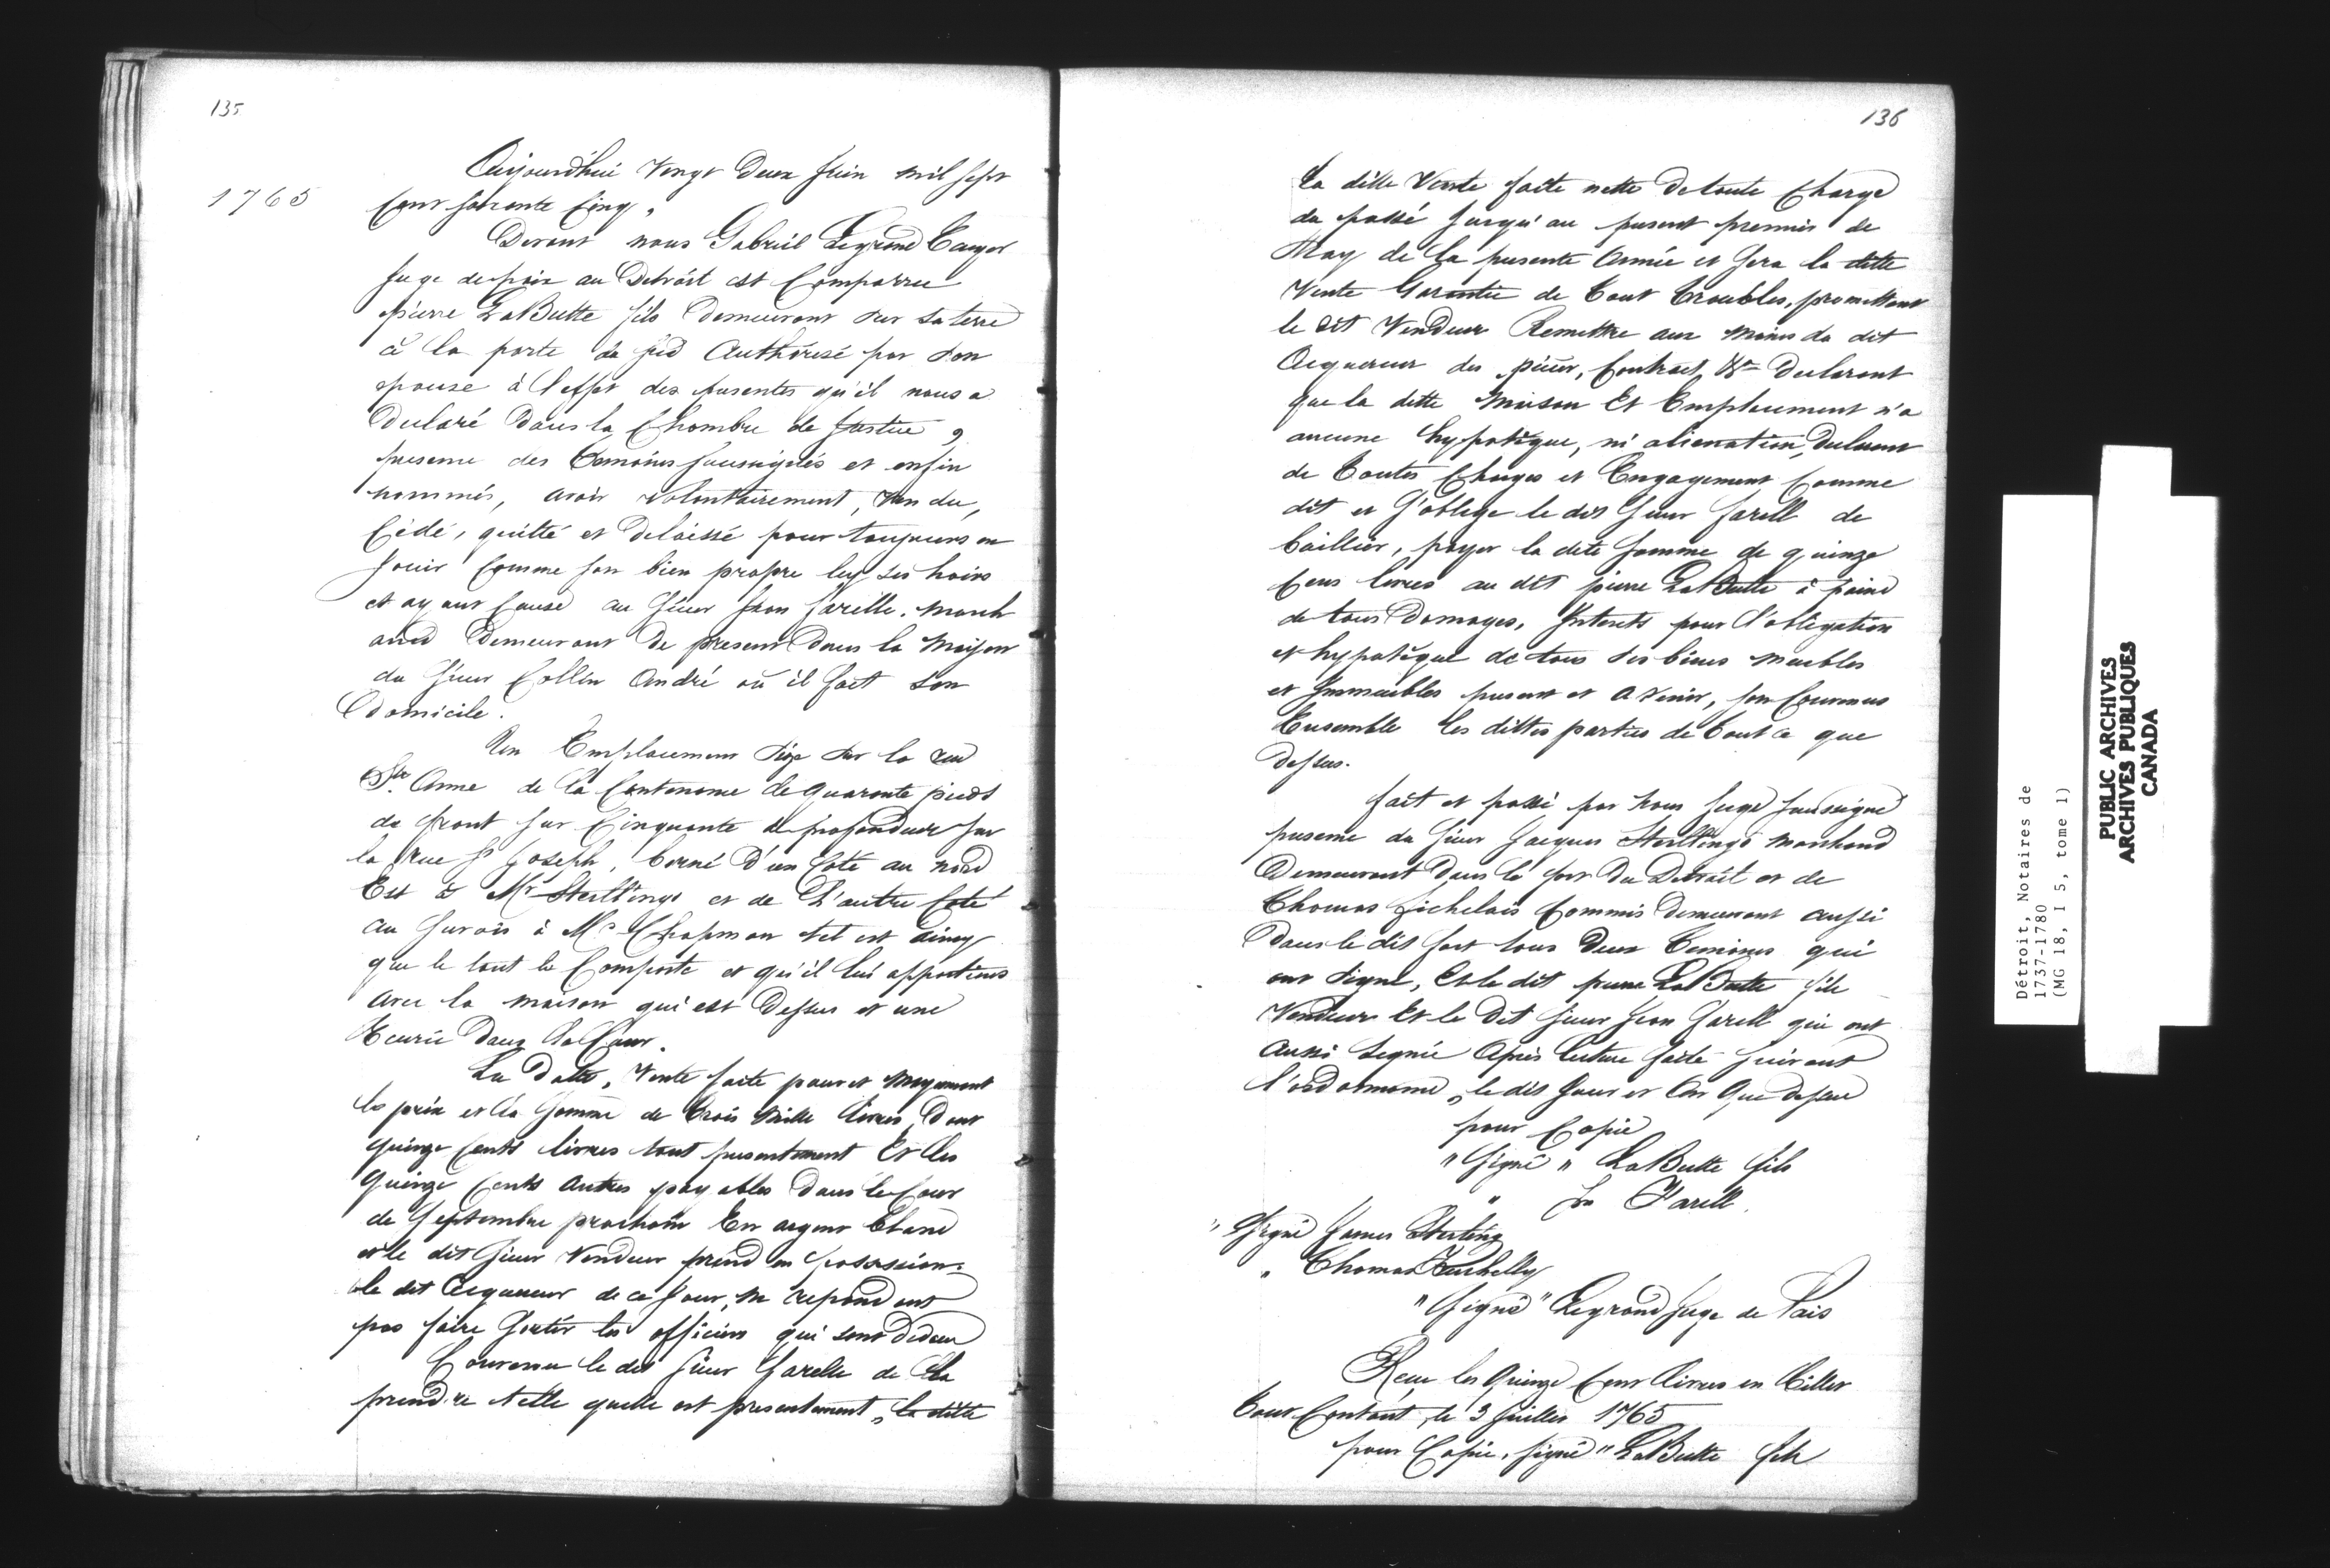 135
Aujourd'hui Vingt Deux Juin mil sept
1765
Cent soixante Cinq,
Devant nous Gabriel Legrand
Juge de paix au Detroit est Comparru
pierre LaButte fils Demeurant sur sa terre
à la porte du Authorisé par son
epouse à l'effet des presentes qu'il nous a
Declaré Dans la Chambre de Justice,
presence des Temoins soussignés et enfin
nommés, avoir volontairement, Vendu,
Cédé, quitté et Delaissé pour toujours en
Jouir Comme son bien propre luy ses hoirs
et ayant Cause au Sieur Jean Farelle, March
and Demeurant De present Dans la Maison
du Sieur Collin André où il fait son
Domicile.
Un Emplacement size sur la rue
Ste Anne de la Contenance de quarante pieds
de front sur Cinquante de profondeur sur
la rue St Joseph, borné D'un Coté au nord
Est à Mr Sterltings et de L'autre Coté
au surois à Mr Chapman tel et ainsy
que le tout le Comporte et qu'il lui appartiens
avec la maison qui est Dessus et une
Ecurie Dans La Cour.
La Datte, Vente faite pour et moyennant
le prix et la somme de trois Mille livres, Dont
quinze Cents livres tout presentement Et les
quinze Cents autres payables Dans le Cour
de Septembre prochain En argent
et le dit Sieur Vendeur prend en possession
le dit Acquereur de ce Jour, ne repondant
pas faire Sortir les officiers qui sont Dedans
Convenu le dit Sieur Farelle de La
prendre telle quelle est presentement, la ditte
136
La ditte Vente faite nette De toute Charge
du passé Jusqu'au present premier de
May de La presente Année et sera la ditte
Vente Garantie de tout troubles, promettant
le dit Vendeur Remettre aux mains du dit
Acquereur des pièces, Contract, &a Declarant
que la ditte Maison Et Emplacement n'a
aucune hypotèque, ni alienation, Declarant
de toutes Charges et Engagement Comme
dit et S'oblege le dit Sieur Farell de
bailler, payer la dite somme de quinze
Cens livres au dit pierre LaButte à paine
de tous Domages, Interests pour l'obligation
et hypotèque de tous ses biens meubles
et Immeubles present et A venir, son Convenus
Ensemble les dittes parties de tout ce que
dessus.
fait et passé par nous Juge soussigné
presence du Sieur Jacques Sterltings Marchand
Demeurant Dans le fort Du Detroit et de
Thomas Commis Demeurant aussi
Dans le dit fort tous Deux temoins qui
ont signé, Et le dit pierre LaButte fils
Vendeur Et le Dit Sieur Jean Farell qui ont
Aussi Signée Après lecture faite suivant
l'ordonnance, le dit Jour et An Que dessus
pour Copie
"Signé" LaButte fils
" Jn Farell.
"Signé James Sterling
" Thomas
"Signé" Legrand Juge de Pais
Recu les Quinze Cent Livres en billet
tout Contant, le 3 Juillet 1765
pour Copie, signé "LaButte fils
Détroit, Notaires de
1737-1780
(MG 18, I 5, tome 1)
PUBLIC ARCHIVES
ARCHIVES PUBLIQUES
CANADA